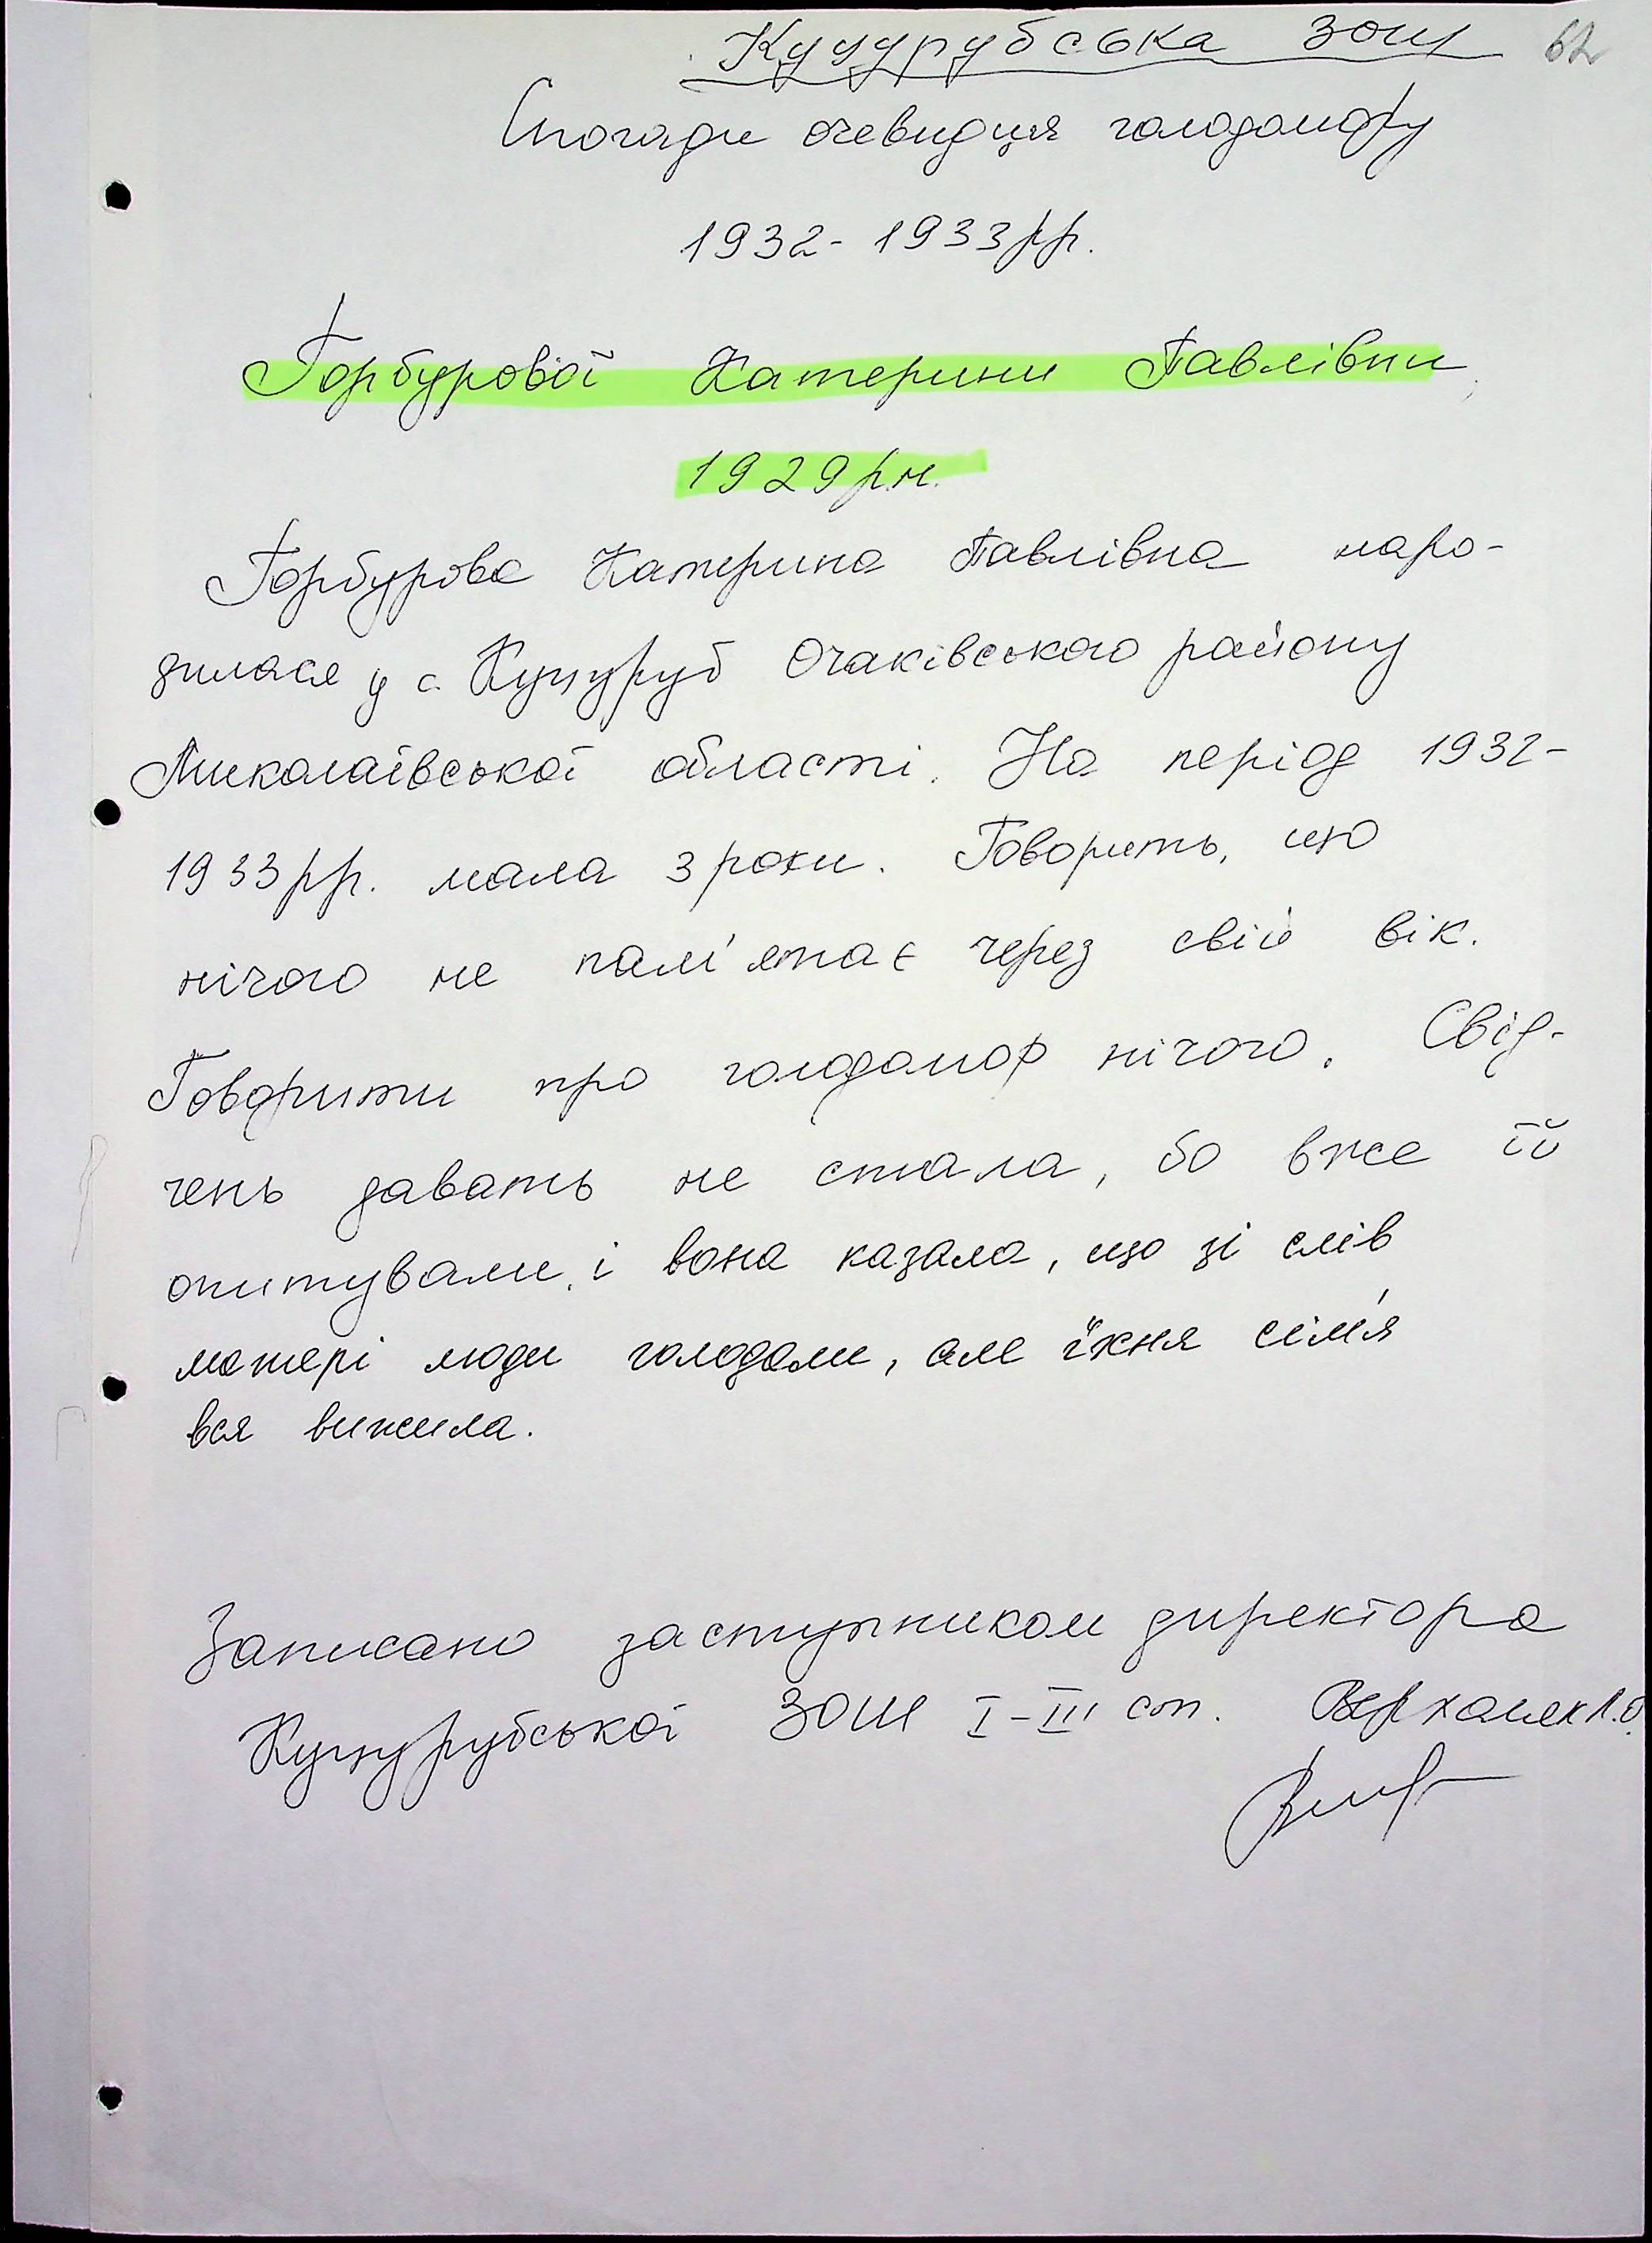 Куцурубська ЗОШ 62
Спогади очевидця голодомору
1932-1933рр.
Горбурової Катерини Павлівни,
1929р.н.
Горбурова Катерина Павлівна наро-
дилася у с. Куцуруб Очаківського району
Миколаївської області. На період 1932-
1933рр. мала 3 роки. Говорить, що
нічого не пам'ятає через свій вік.
Говорити про голодомор нічого. Свід-
чень давать не стала, бо вже її
опитували, і вона казала, що зі слів
матері люди голодали, але їхня сім'я
вся вижила.
Записано заступником директора
Куцурубської ЗОШ І-ІІІ ст.